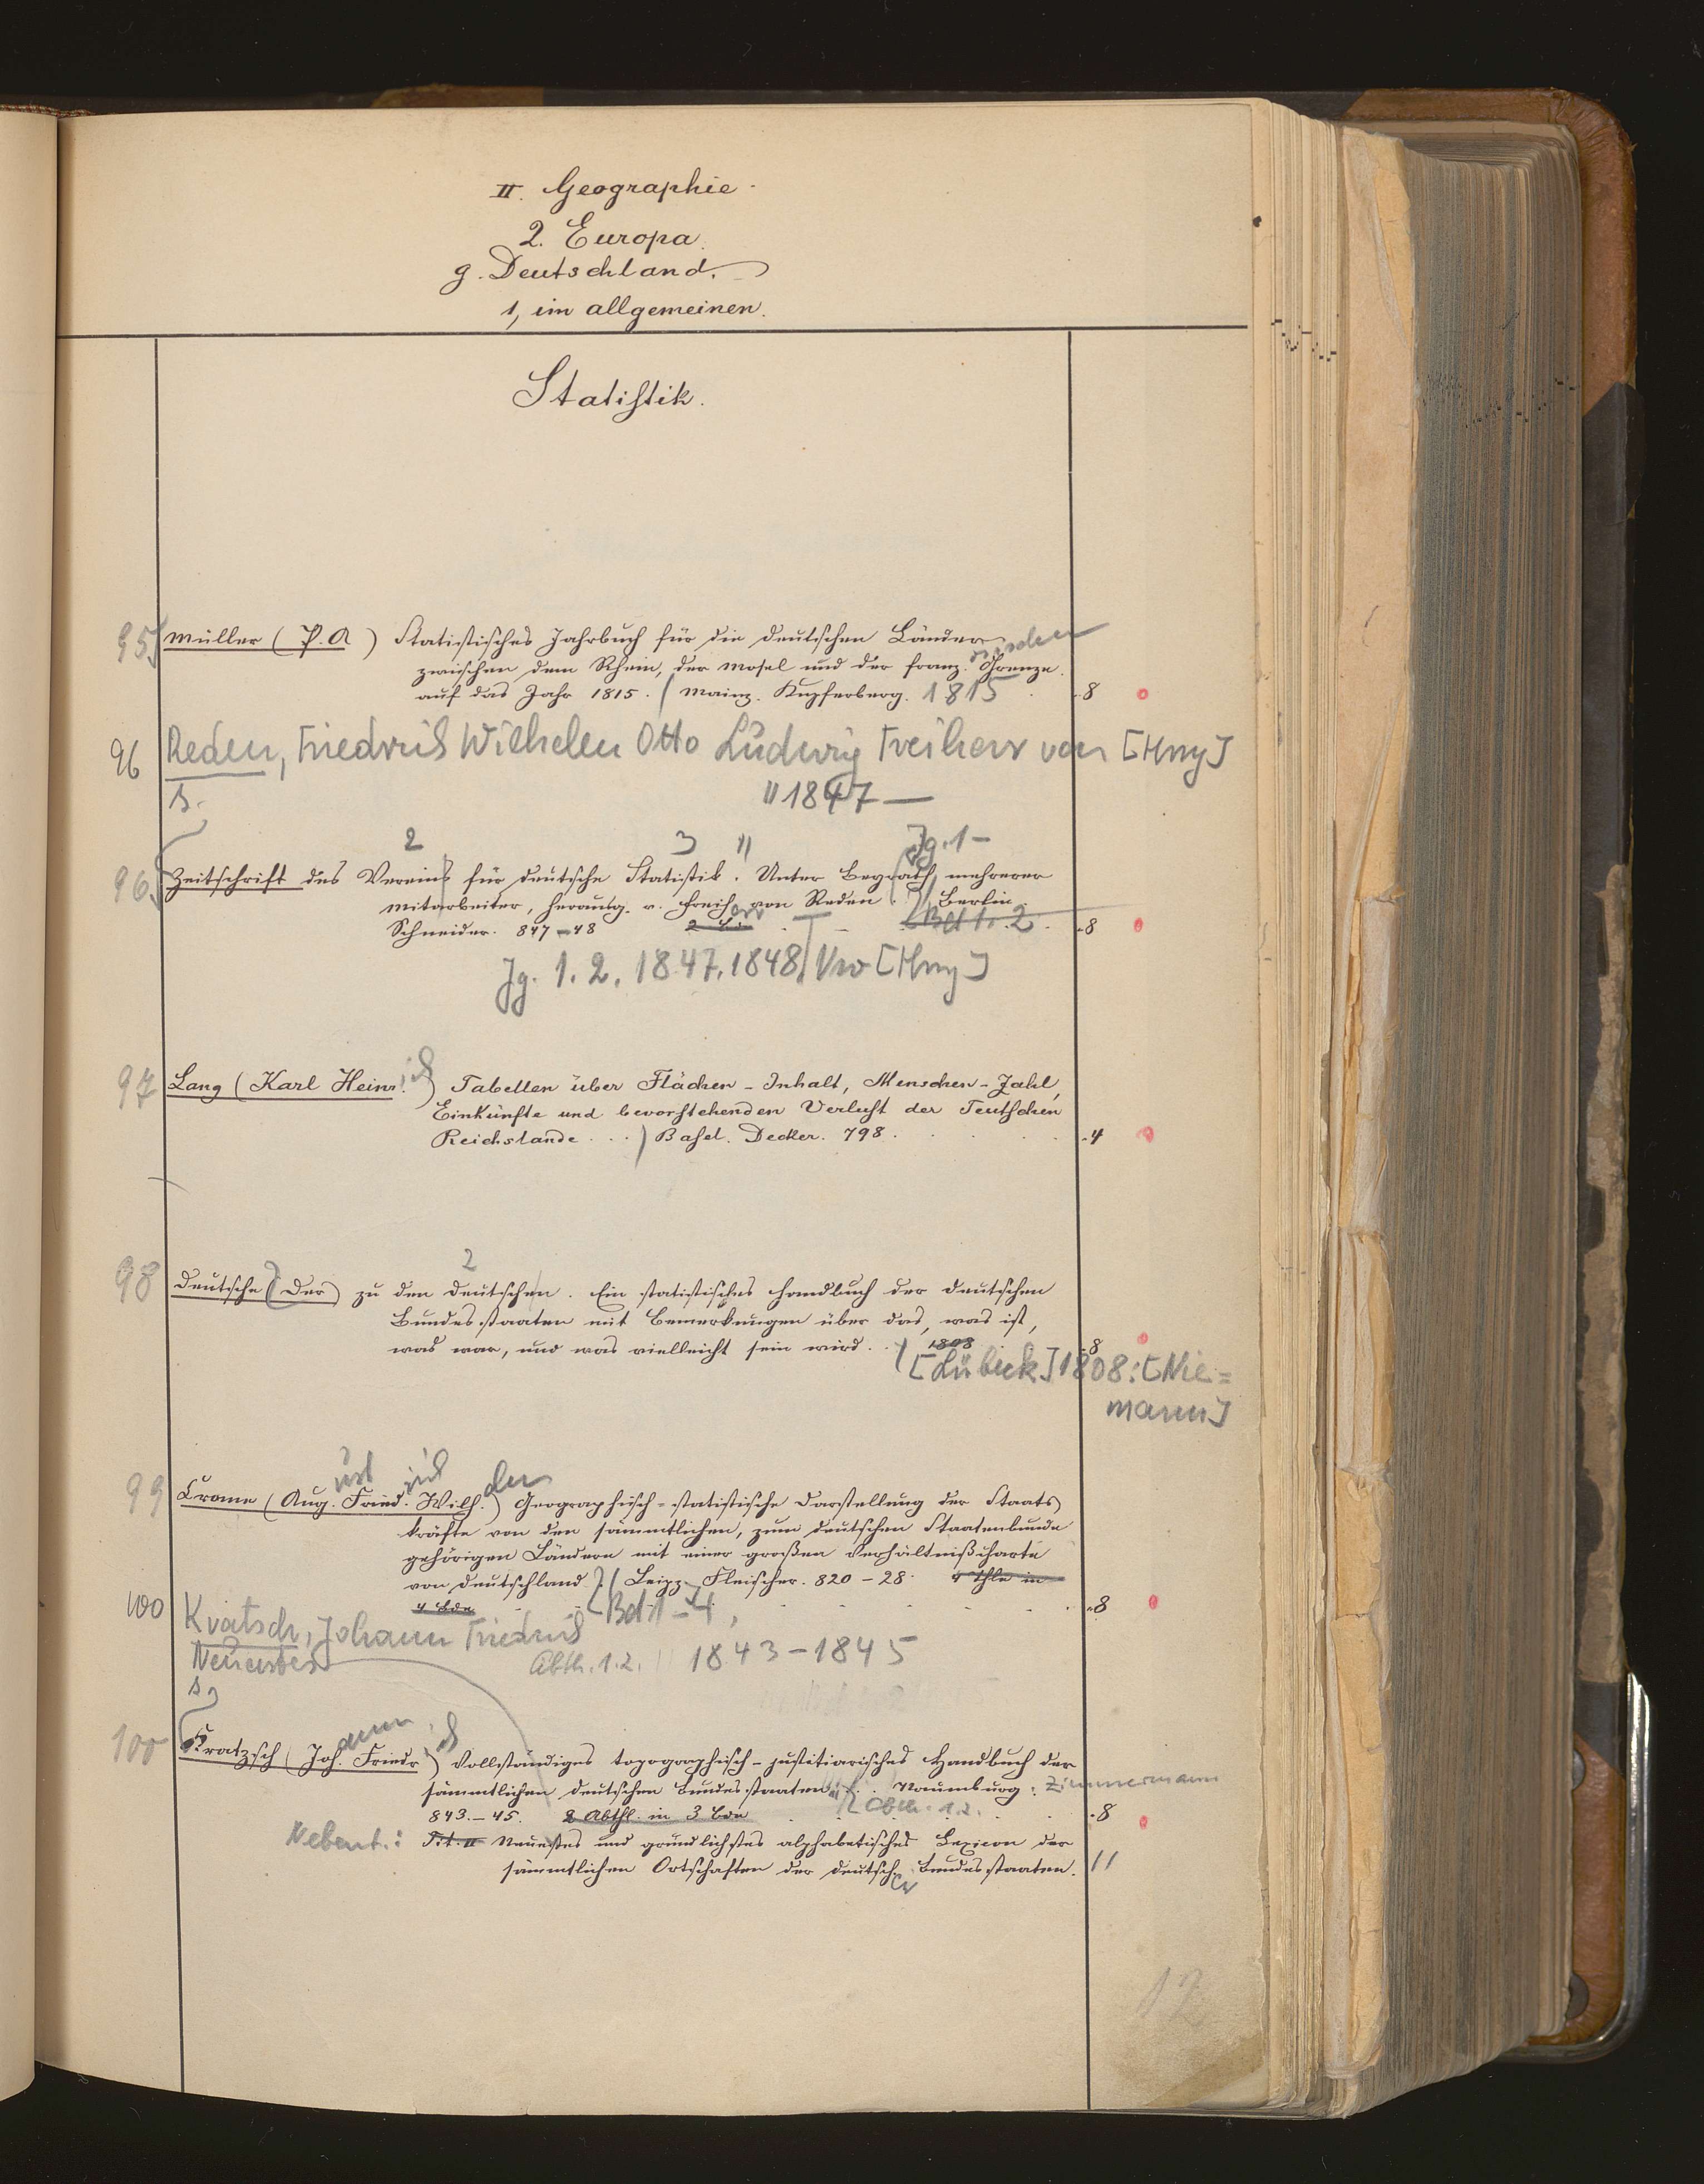 II. Geographie.
2. Europa.
g. Deutschland.
1, im allgemeinen.
Statistik.
95. Müller (P. A) Statistisches Jahrbuch für die deutschen Länder
zwischen dem Rhein, der Mosel und der franz.ösischen Grenze
auf das Jahr 1815. / Mainz. Kupferberg. 1815 . 8
96 Reden, Friedrich Wilhelm Otto Ludwig Freiherr von [Hrsg]
s. " 1847 —
2 3 " Jg. 1 –
96. Zeitschrift des Vereins für deutsche Statistik. Unter Beyrath mehrerer
Mitarbeiter, herausg. v. Freiherr von Reden. Berlin.
Schneider. 847–48 2 Bde. [Bd 1. 2. 8
Jg. 1. 2. 1847. 1848
97 Lang (Karl Heinr.ich) Tabellen über Flächen-Inhalt, Menschen-Zahl,
Einkünfte und bevorstehenden Verlust der Teutschen
Reichslande . . . / Basel. Decker. 798. 4
2
98 Deutsche (Der) zu den Deutschen. Ein statistisches Handbuch der deutschen
Bundesstaaten mit Bemerkungen über das, was ist,
was war, und was vielleicht sein wird. . / 1808 8
[Lübeck] 1808: [Nie=
mann]
99 Crome (Aug.ust Fried.rich Wilh.) Geographisch-statistische Darstellung der Staats
kräfte von den sämmtlichen, zum deutschen Staatenbunde
gehörigen Ländern mit einer großen Verhältnißcharte
von Deutschland. / Leipz. Fleischer. 820–28. 4 Thle in
4 Bde [Bd 1–4, 8
100 Kratsch, Johann Friedrich
Neuestes Abth. 1.2. " 1843–1845
s.
100 Kratzsch (Joh.ann Friedr.ich) Vollständiges topographisch-justitiarisches Handbuch der
sämmtlichen deutschen Bundesstaaten . . Naumburg: Zimmermann
843.–45. 2 Abthl. in 3 Bde [Abth. 1.2. 8
Nebent.: Tit. II Neuestes und gründlichstes alphabetisches Lexicon der
sämmtlichen Ortschaften der deutschen Bundesstaaten. 11
12